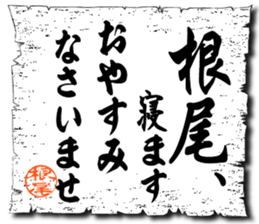 根尾、
寝ます
おやすみ
なさいませ
根尾